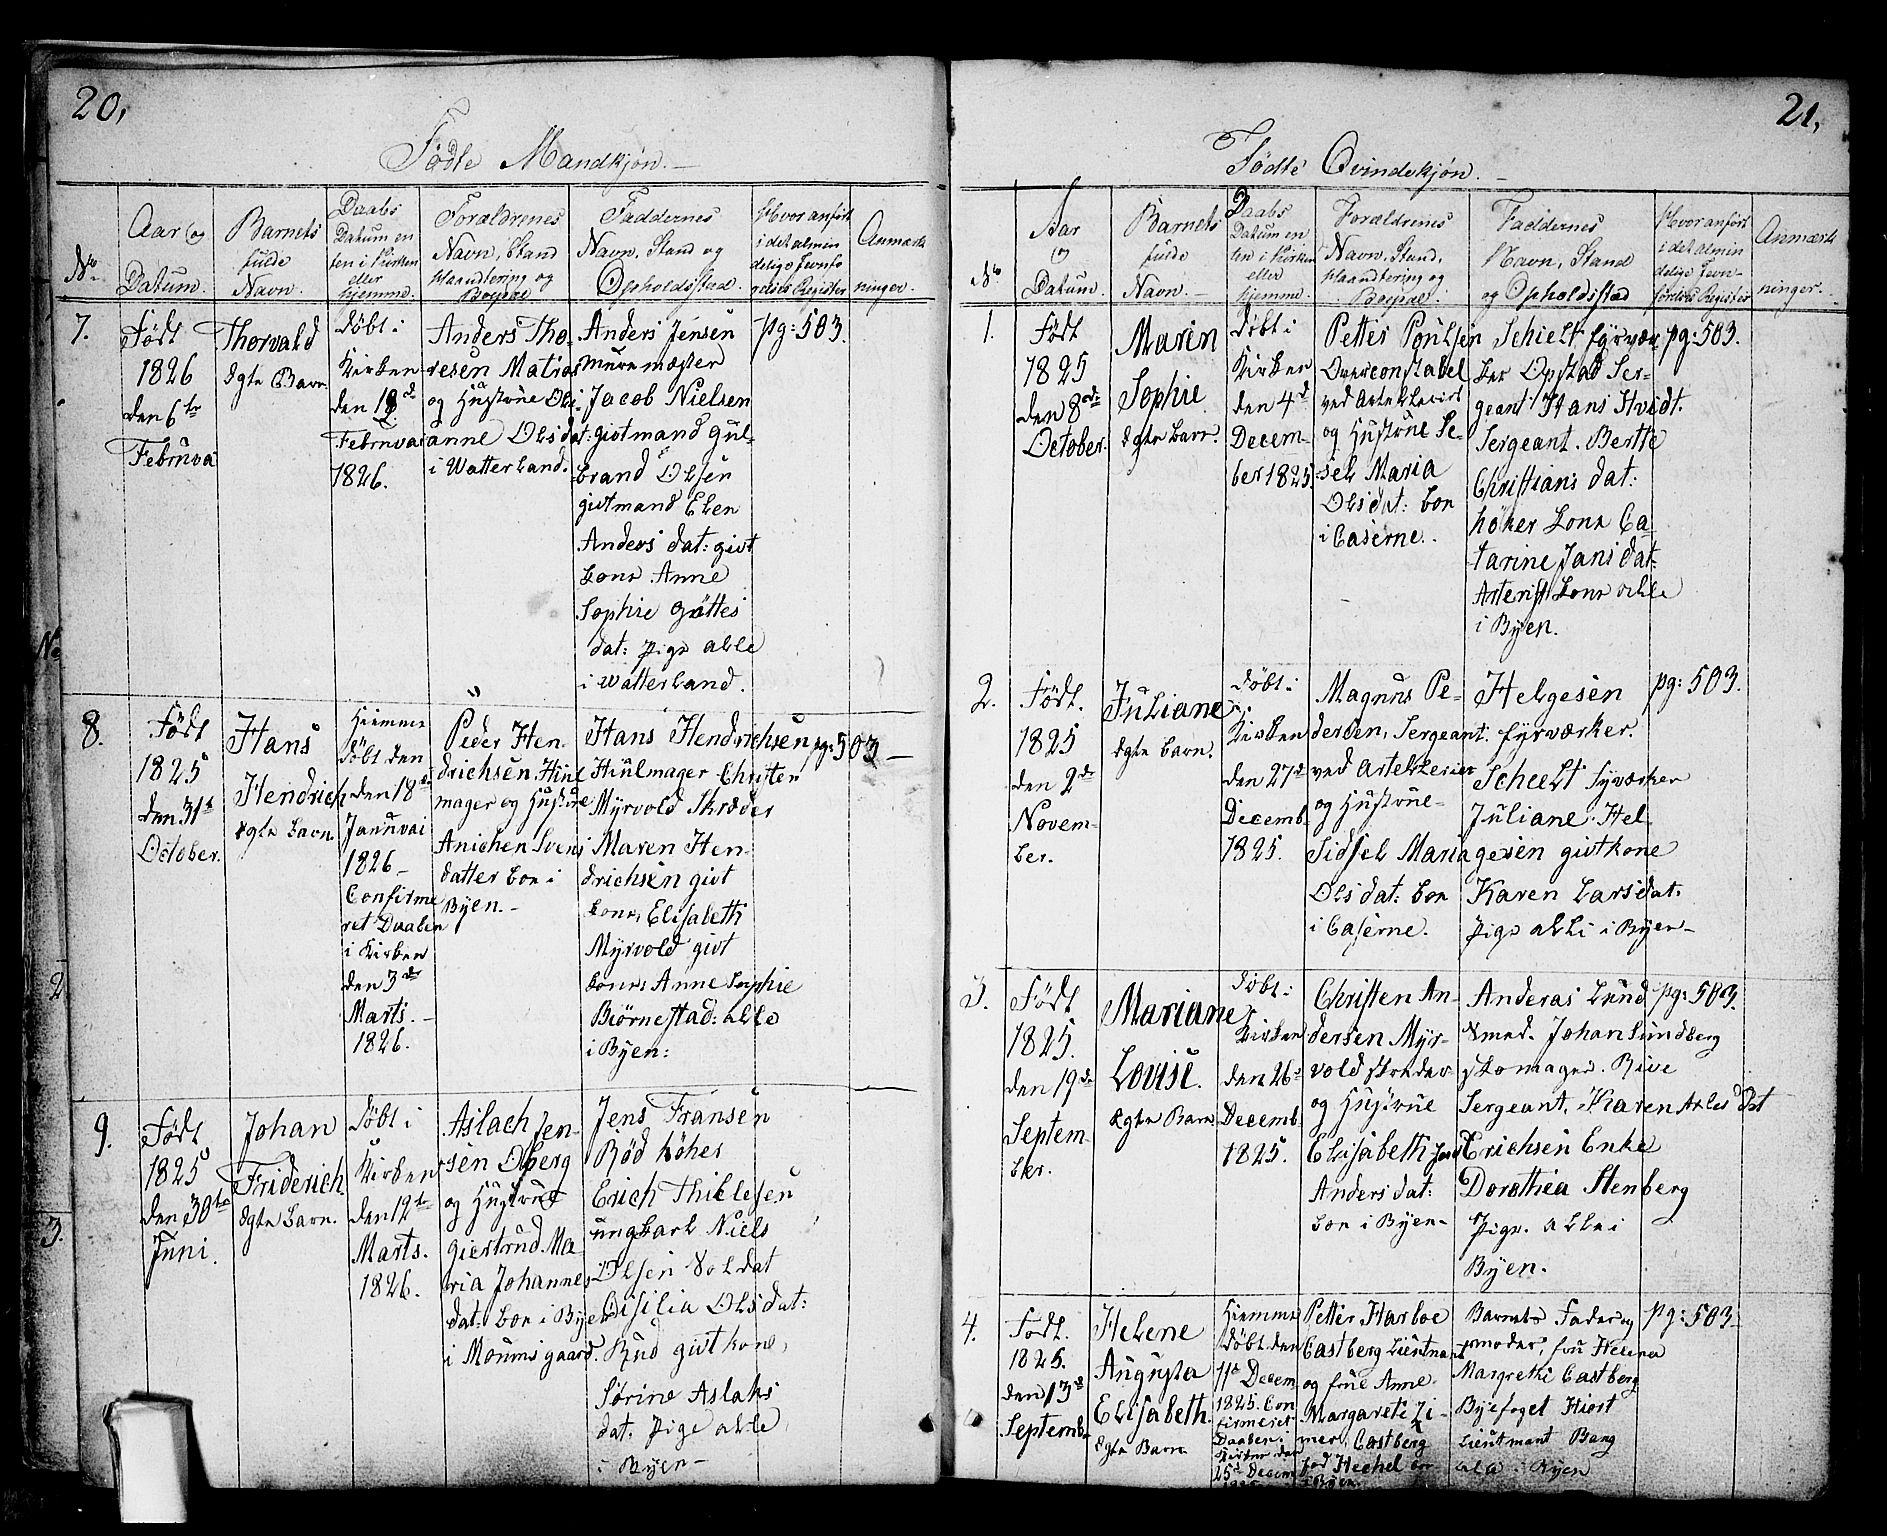 20,
Fødte Mandkjøn.
No.
Aar og
Datum.
Barnets
fulde
Navn.
Daabs
Datum en
ten i Kirken
eller
hjemme.
Forældrenes
Navn, Stand
Haandtering og
Boepæl
Faddernes
Navn, Stand og
Opholdsstad.
Hvor anført
i det almin
delige Jevnfø
relses Register
Anmærk
ninger.
7.
Født
1826
den 6te
Februa
Thorvald
ægte Barn
døbt i
Kirken
den 12d
Februar
1826.
Anders Tho-
resen Matros
og Hustrue Ole
anne Olsdat:
i Watterland.
Anders Jensen
Muremæster
Jacob Nielsen
givtmand Gul-
brand Olsen
givtmand Elen
Anders dat: givt
kone Anne
Sophie Gøttes
dat: pige alle
i Watterland.
pg: 503.
8.
Født
1825
den 31t
October.
Hans
Hendrich
ægte barn
Hiemme
døbt den
den 18de
Januvai
1826 -
Confirme
ret Daaben
i Kirken
den 3de
Marts. -
1826.
Peder Hen
drichsen Hiul
mager og Hustrue
Anichen Svens
datter boe i
Byen. -
Hans Hendrichsen
Hiulmager Christen
Myrvold Skræder
Maren Hen-
drichsen givt
kone, Elisabeth
Myrvold givt
kone, Anne Sophie
Biørnestad: alle
i Byen:
pg: 503 -
9.
Født
1825
den 30te
Juni.
Johan
Friderich
ægte barn.
døbt i
Kirken
den 12te
Marts.
1826.
Aslach Jen-
sen Oberg
og Hustrue
Giertrud Ma
ria Johannes
dat: boe i Byen
i Moumsgaard.
Jens Fransen
Rød høker
Erich Thielesen
ungkarl Niels
Olsen Soldat
Cisilia Olsdat:
Rud givtkone,
Sørine Aslaks
dat: pige alle
i Byen -
21,
Fødte Qvindekjøn. -
No
Aar
og
Datum.
Barnets
fulde
Navn. -
Daabs
Datum en
ten i Kirken
eller
hjemme.
Forældrenes
Navn, Stand,
Haandtering og
Boepæl
Faddernes
Navn, Stand
og Opholdsstad
Hvor anført
i det almin
delige Jevn-
førelses Register
Anmærk
ninger.
1.
Født
1825
den 8de
October.
Maren
Sophie
ægte barn.
døbt i
Kirken
den 4d
Decem-
ber 1825.
Petter Poulsen
Overconstabel
ved Artelleriet
og Hustrue Se-
sel Maria
Olsdat: boe
i Caserne.
Schielt fyrvær
ker Opstad Ser-
geant Hans Hvidt.
Sergeant. Berthe
Christians dat:
høker kone Ca
tarine Jans dat.
kone alle
i Byen.
pg: 503.
2.
Født.
1825
den 2de
Novem-
ber.
Juliane
ægte barn.
døbt i
Kirken
den 27d
Decemb.
1825.
Magnus Pe-
dersen, Sergeant
ved Artelleriet
og Hustrue
Sidsel Maria
Olsdat: boe
i Caserne.
Helgesen
fyrværker.
Scheelt fyrværker
Juliane Hel-
gesen givtkone
Karen Larsdat.
pige alle i Byen -
pg: 503.
3.
Født
1825.
den 19de
Septem-
ber.
Mariane
Lovise.
ægte Barn
døbt i
Kirken
den 26d
Decemb
1825.
Christen An-
dersen Myr-
vold Skræder
og Hustrue
Elisabeth
Anders dat:
boe i Byen -
Anderas Lund
Smed. Johan Sundberg
skomager. Rive
Sergeant, Karen
Erichsen Enke
Dorothea Stenberg
pige. alle i
Byen.
pg: 503.
4.
Født.
1825.
den 13d
Septemb
Helene
Augusta
Elisabeth.
ægte Barn
Hiemme
døbt den
11te Decem
1825. Con
firmeret
Daaben i
Kirken den
25d Decem
Petter Harboe
Castberg Lieutnant
og frue Anne
Margarete Zi-
mer, Castberg
fød Hechel boe
i Byen
Barnets Fader og
moder, fru Helena
Margrethe Castberg
Byefoget Hiort
Lieutnant Bang
alle i Byen
pg: 503.